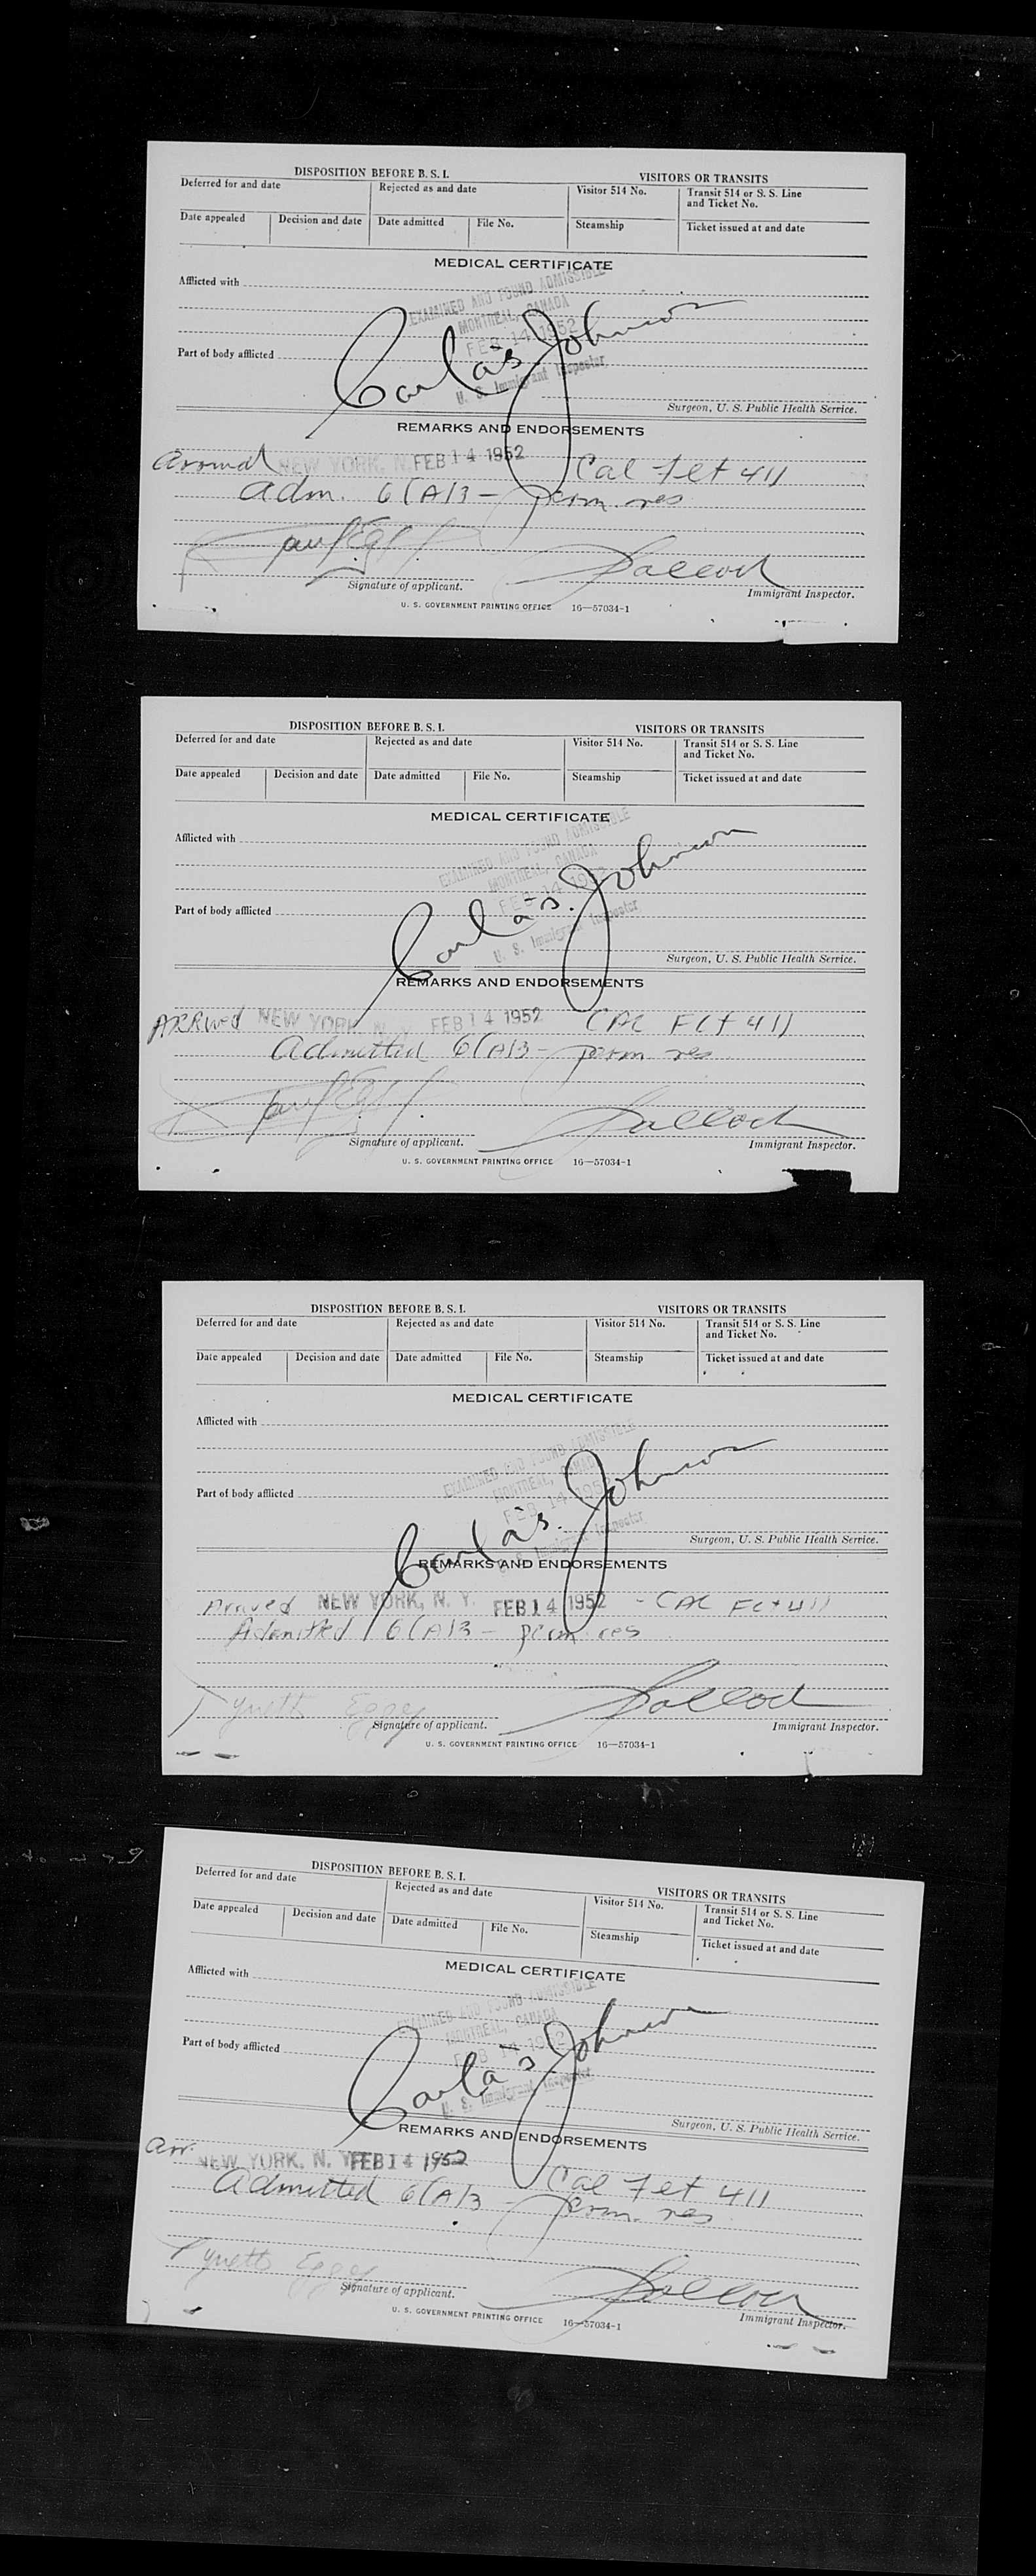 DISPOSITION BEFORE B. S. I.
VISITORS OR TRANSITS
Deferred for and date
Rejected as and date
Visitor 514 No.
Transit 514 or S. S. Line and Ticket No.
Date appealed
Decision and date
Date admitted
File No.
Steamship
Ticket issued at and date
MEDICAL CERTIFICATE
Afflicted with
EXAMINED AND FOUND ADMISSIBLE
MONTREAL, CANADA
FEB 14 1952
U. S. Immigrant Inspector
Johnson
Part of body afflicted
Surgeon, U. S. Public Health Service.
REMARKS AND ENDORSEMENTS
NEW YORK, N. FEB 14 1952 Cal Flt 411
adm. 6(A)3 - perm. res
Signature of applicant.
Immigrant Inspector.
U. S. GOVERNMENT PRINTING OFFICE 16—57034-1
DISPOSITION BEFORE B. S. I.
VISITORS OR TRANSITS
Deferred for and date
Rejected as and date
Visitor 514 No.
Transit 514 or S. S. Line and Ticket No.
Date appealed
Decision and date
Date admitted
File No.
Steamship
Ticket issued at and date
MEDICAL CERTIFICATE
Afflicted with
EXAMINED AND FOUND ADMISSIBLE
MONTREAL, CANADA
FEB 14 1952
U. S. Immigrant Inspector
Johnson
Part of body afflicted
Surgeon, U. S. Public Health Service.
REMARKS AND ENDORSEMENTS
ARRived NEW YORK, N. Y. FEB 14 1952 CAL Flt 411
Admitted 6(A)3 - perm res
Signature of applicant.
Immigrant Inspector.
U. S. GOVERNMENT PRINTING OFFICE 16—57034-1
DISPOSITION BEFORE B. S. I.
VISITORS OR TRANSITS
Deferred for and date
Rejected as and date
Visitor 514 No.
Transit 514 or S. S. Line and Ticket No.
Date appealed
Decision and date
Date admitted
File No.
Steamship
Ticket issued at and date
MEDICAL CERTIFICATE
Afflicted with
EXAMINED AND FOUND ADMISSIBLE
MONTREAL, CANADA
FEB 14 1952
U. S. Immigrant Inspector
Johnson
Part of body afflicted
Surgeon, U. S. Public Health Service.
REMARKS AND ENDORSEMENTS
Arrived NEW YORK, N. Y. FEB 14 1952 - CAL Flt 411
Admitted 6(A)3 - perm res
Signature of applicant.
Immigrant Inspector.
U. S. GOVERNMENT PRINTING OFFICE 16—57034-1
DISPOSITION BEFORE B. S. I.
VISITORS OR TRANSITS
Deferred for and date
Rejected as and date
Visitor 514 No.
Transit 514 or S. S. Line and Ticket No.
Date appealed
Decision and date
Date admitted
File No.
Steamship
Ticket issued at and date
MEDICAL CERTIFICATE
Afflicted with
EXAMINED AND FOUND ADMISSIBLE
MONTREAL, CANADA
FEB 14 1952
U. S. Immigrant Inspector
Johnson
Part of body afflicted
Surgeon, U. S. Public Health Service.
REMARKS AND ENDORSEMENTS
Arr. NEW YORK, N. Y. FEB 14 1952 Cal Flt 411
Admitted 6(A)3 - perm. res
Signature of applicant.
Immigrant Inspector.
U. S. GOVERNMENT PRINTING OFFICE 16—57034-1